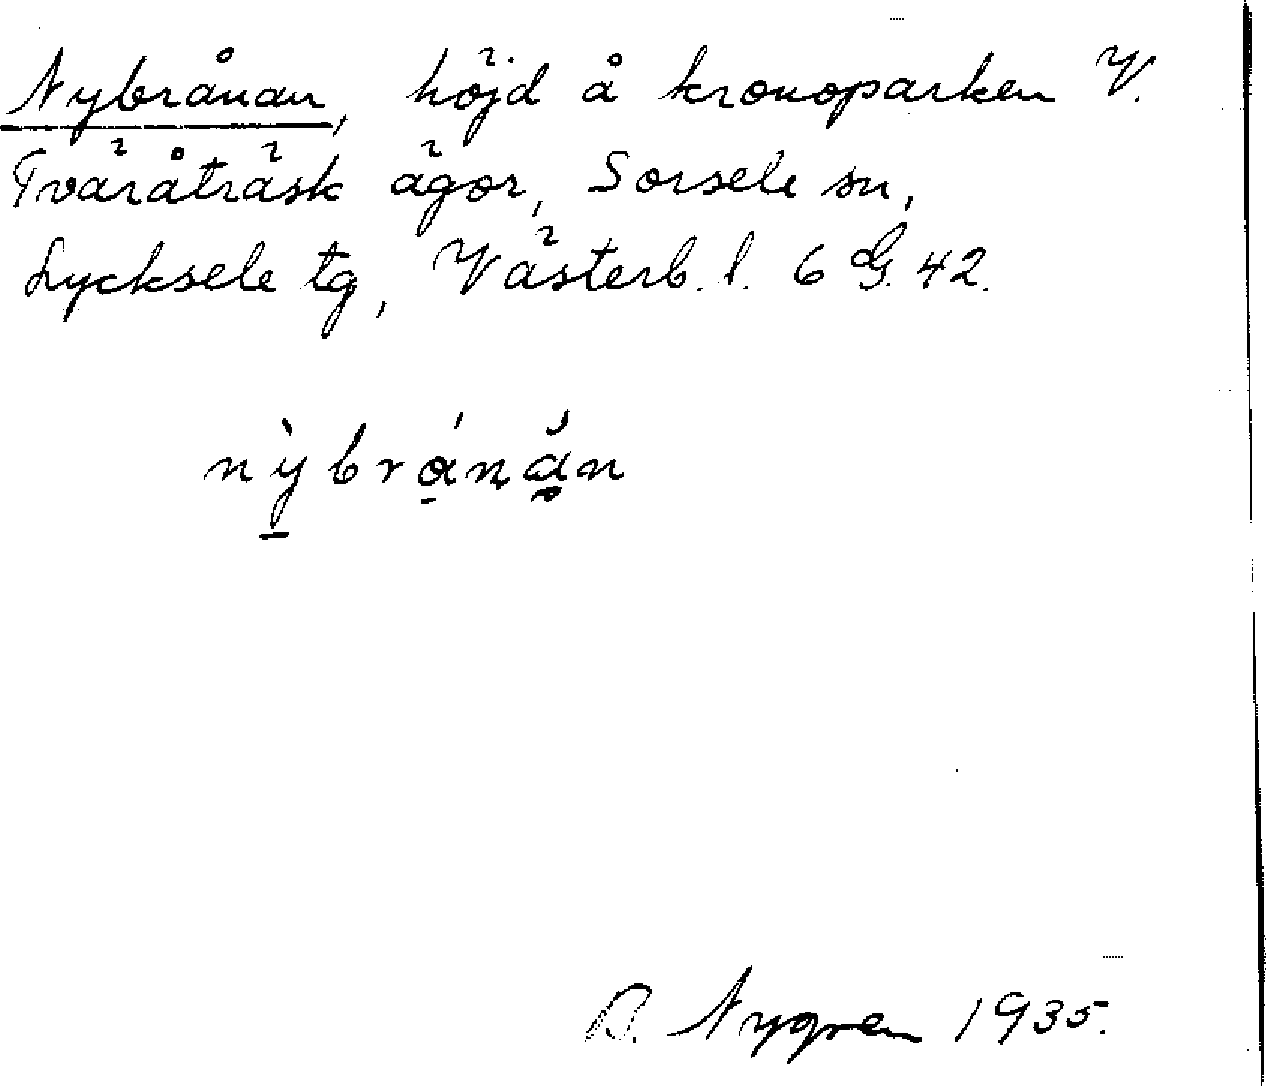 Nybrånan, höjd å kronoparken V.
Tväråträsk ägor, Sorsele sn,
Lycksele tg, Västerb. l. 6 G. 42.
nỳbránăn
R. Nygren 1935.